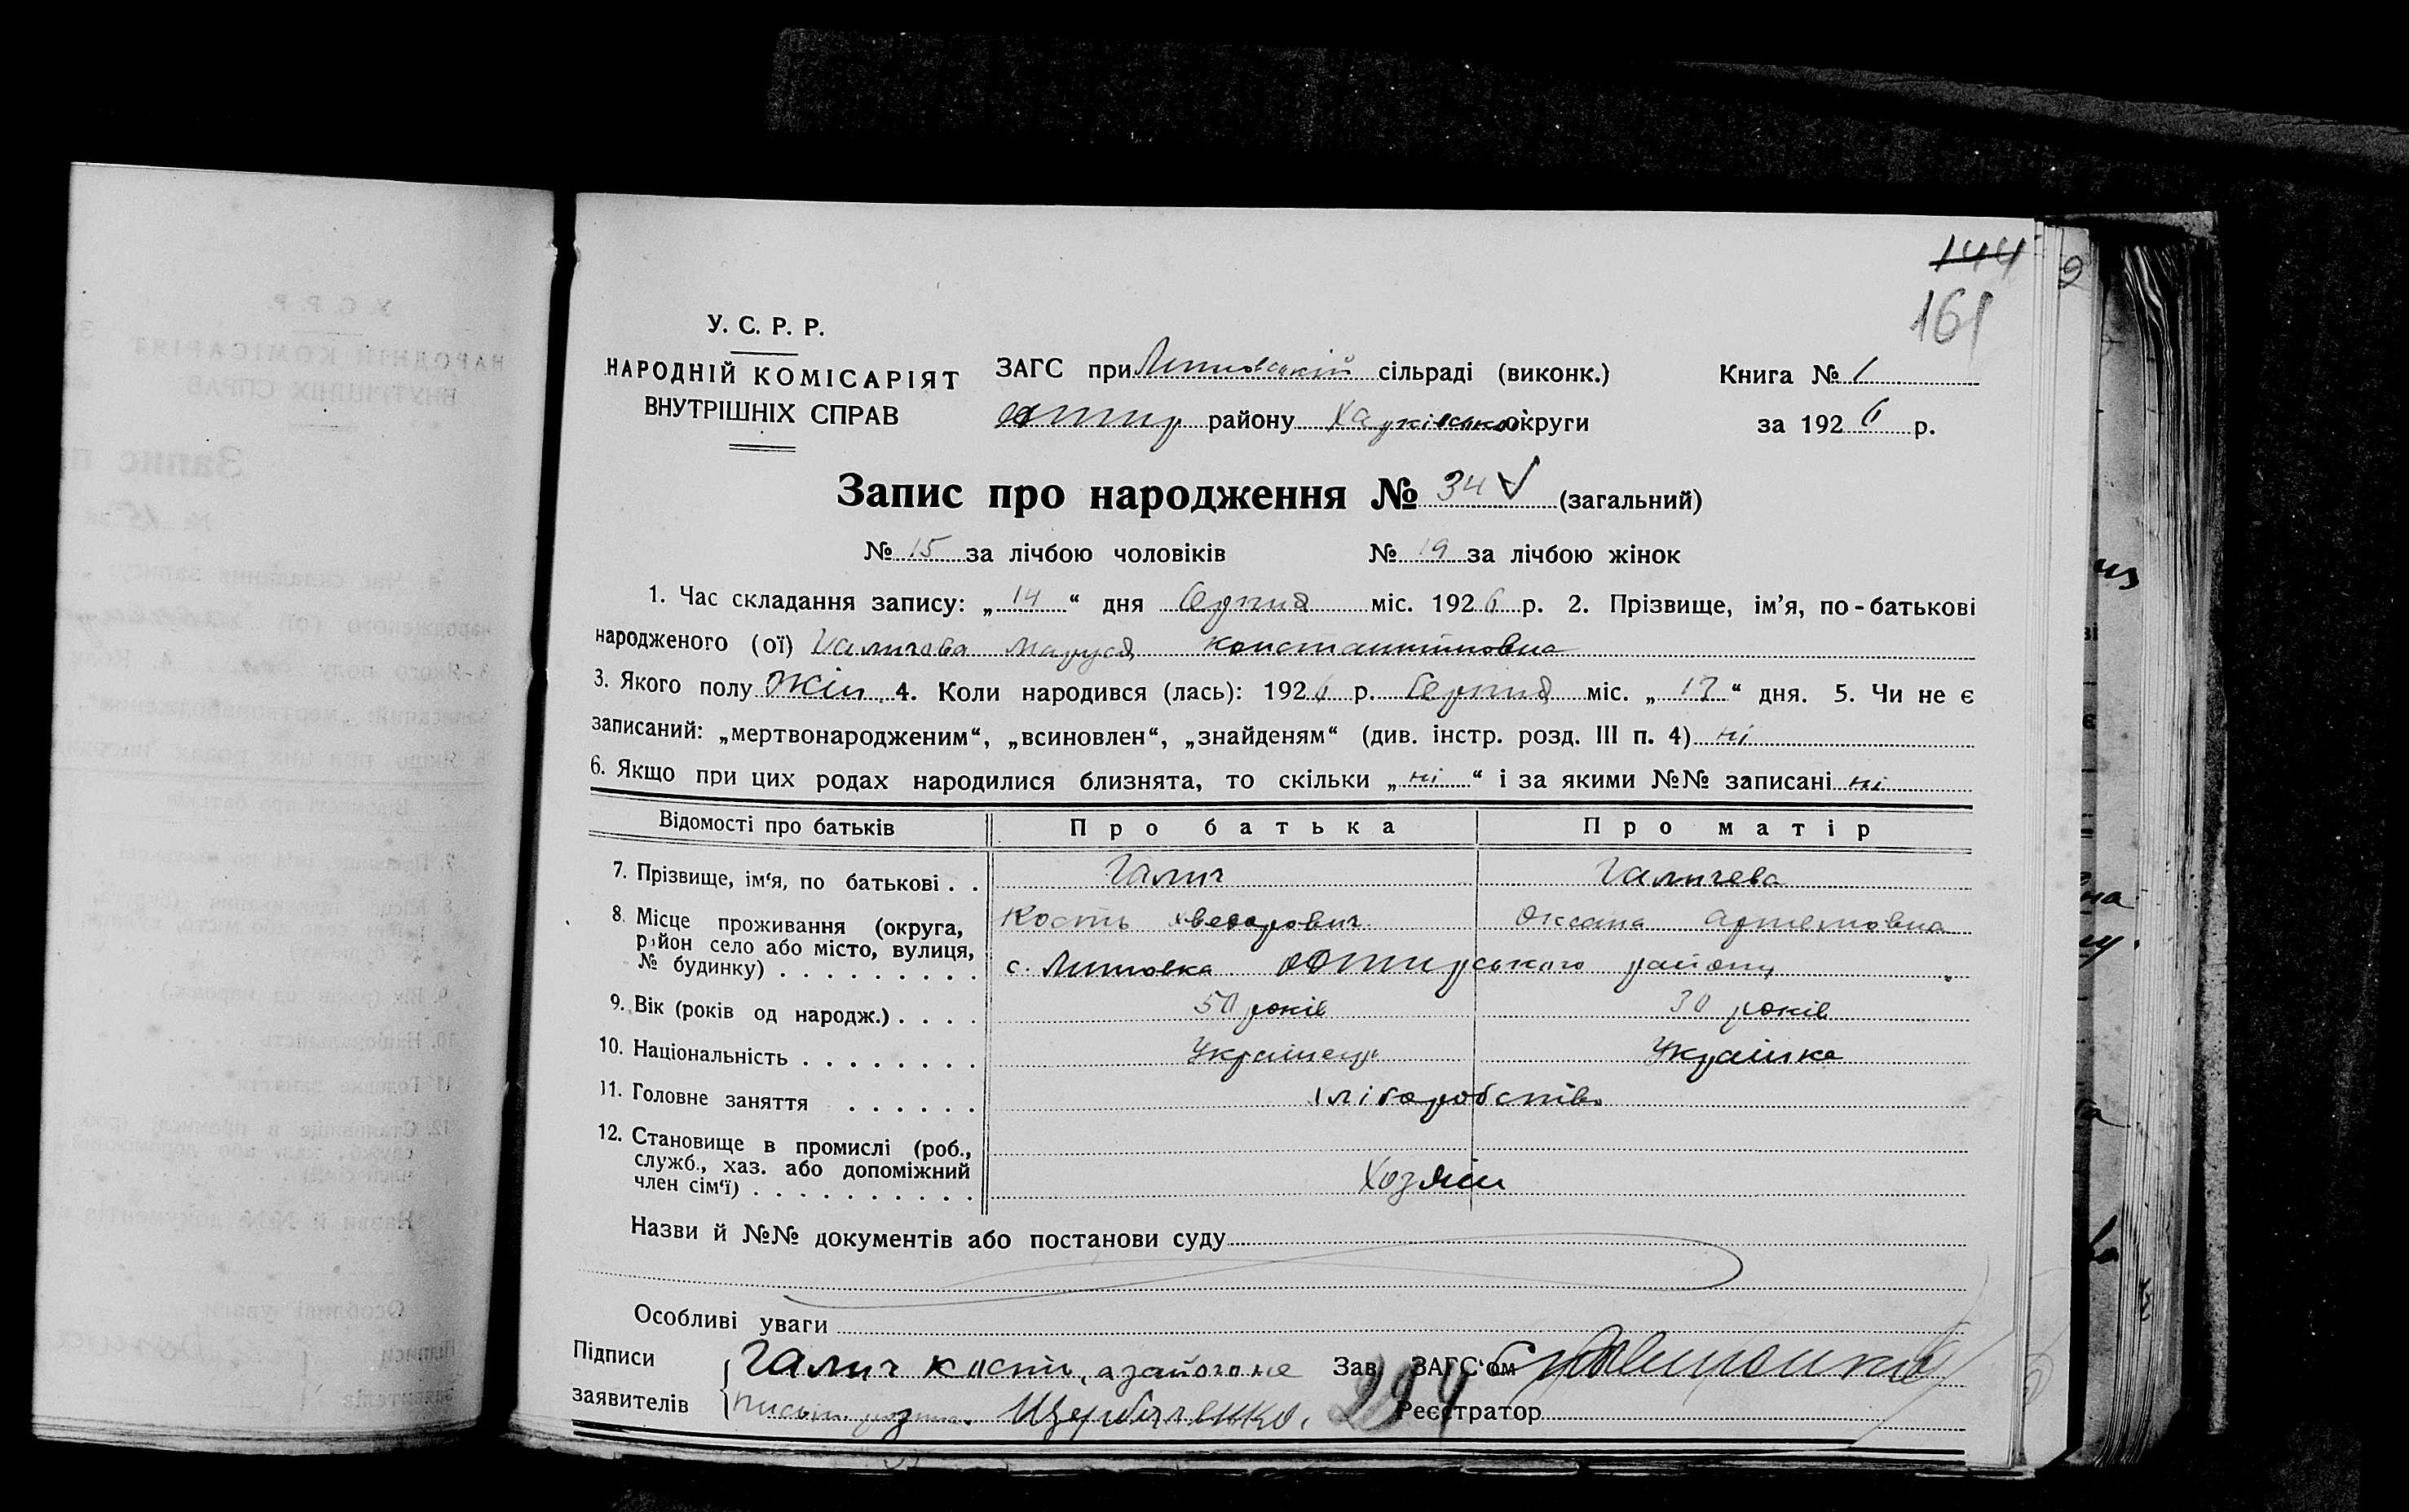 144
161
У. С. Р. Р.
НАРОДНІЙ КОМІСАРІЯТ
ВНУТРІШНІХ СПРАВ
ЗАГС при Литовській сільраді (виконк.)
району Харківської округи
Книга № 1
за 1926 р.
Запис про народження № 34 (загальний)
№ 15 за лічбою чоловіків № 19 за лічбою жінок
1. Час складання запису: „ 14 “ дня Серпня міс. 1926 р. 2. Прізвище, ім’я, по-батькові
народженого (ої) Галичова Маруся Константиновна
3. Якого полу Жін. 4. Коли народився (лась): 1926 р. Серпня міс. „ 13 “ дня. 5. Чи не є
записаний: „мертвонародженим“, „всиновлен“, „знайденям“ (див. інстр. розд. III п. 4) ні
6. Якщо при цих родах народилися близнята, то скільки „ ні “ і за якими №№ записані ні
Відомості про батьків Про батька Про матір
7. Прізвище, ім‘я, по батькові . . Галич Галичева
Кость Хведорович Оксана Артемовна
8. Місце проживання (округа,
район село або місто, вулиця,
№ будинку) . . . . . . . . . с. Литовка Охтирського району
9. Вік (років од народж.) . . . . 50 років 30 років
10. Національність . . . . . . . . Українець Українка
11. Головне заняття . . . . . . хліборобство
12. Становище в промислі (роб.,
служб., хаз. або допоміжний
член сім‘ї) . . . . . . . . . . Хозяїн
Назви й №№ документів або постанови суду
Особливі уваги
Підписи
заявителів
Галич Кость, а за його не
Щербаченко.
Зав. ЗАГС‘ом
294
Реєстратор